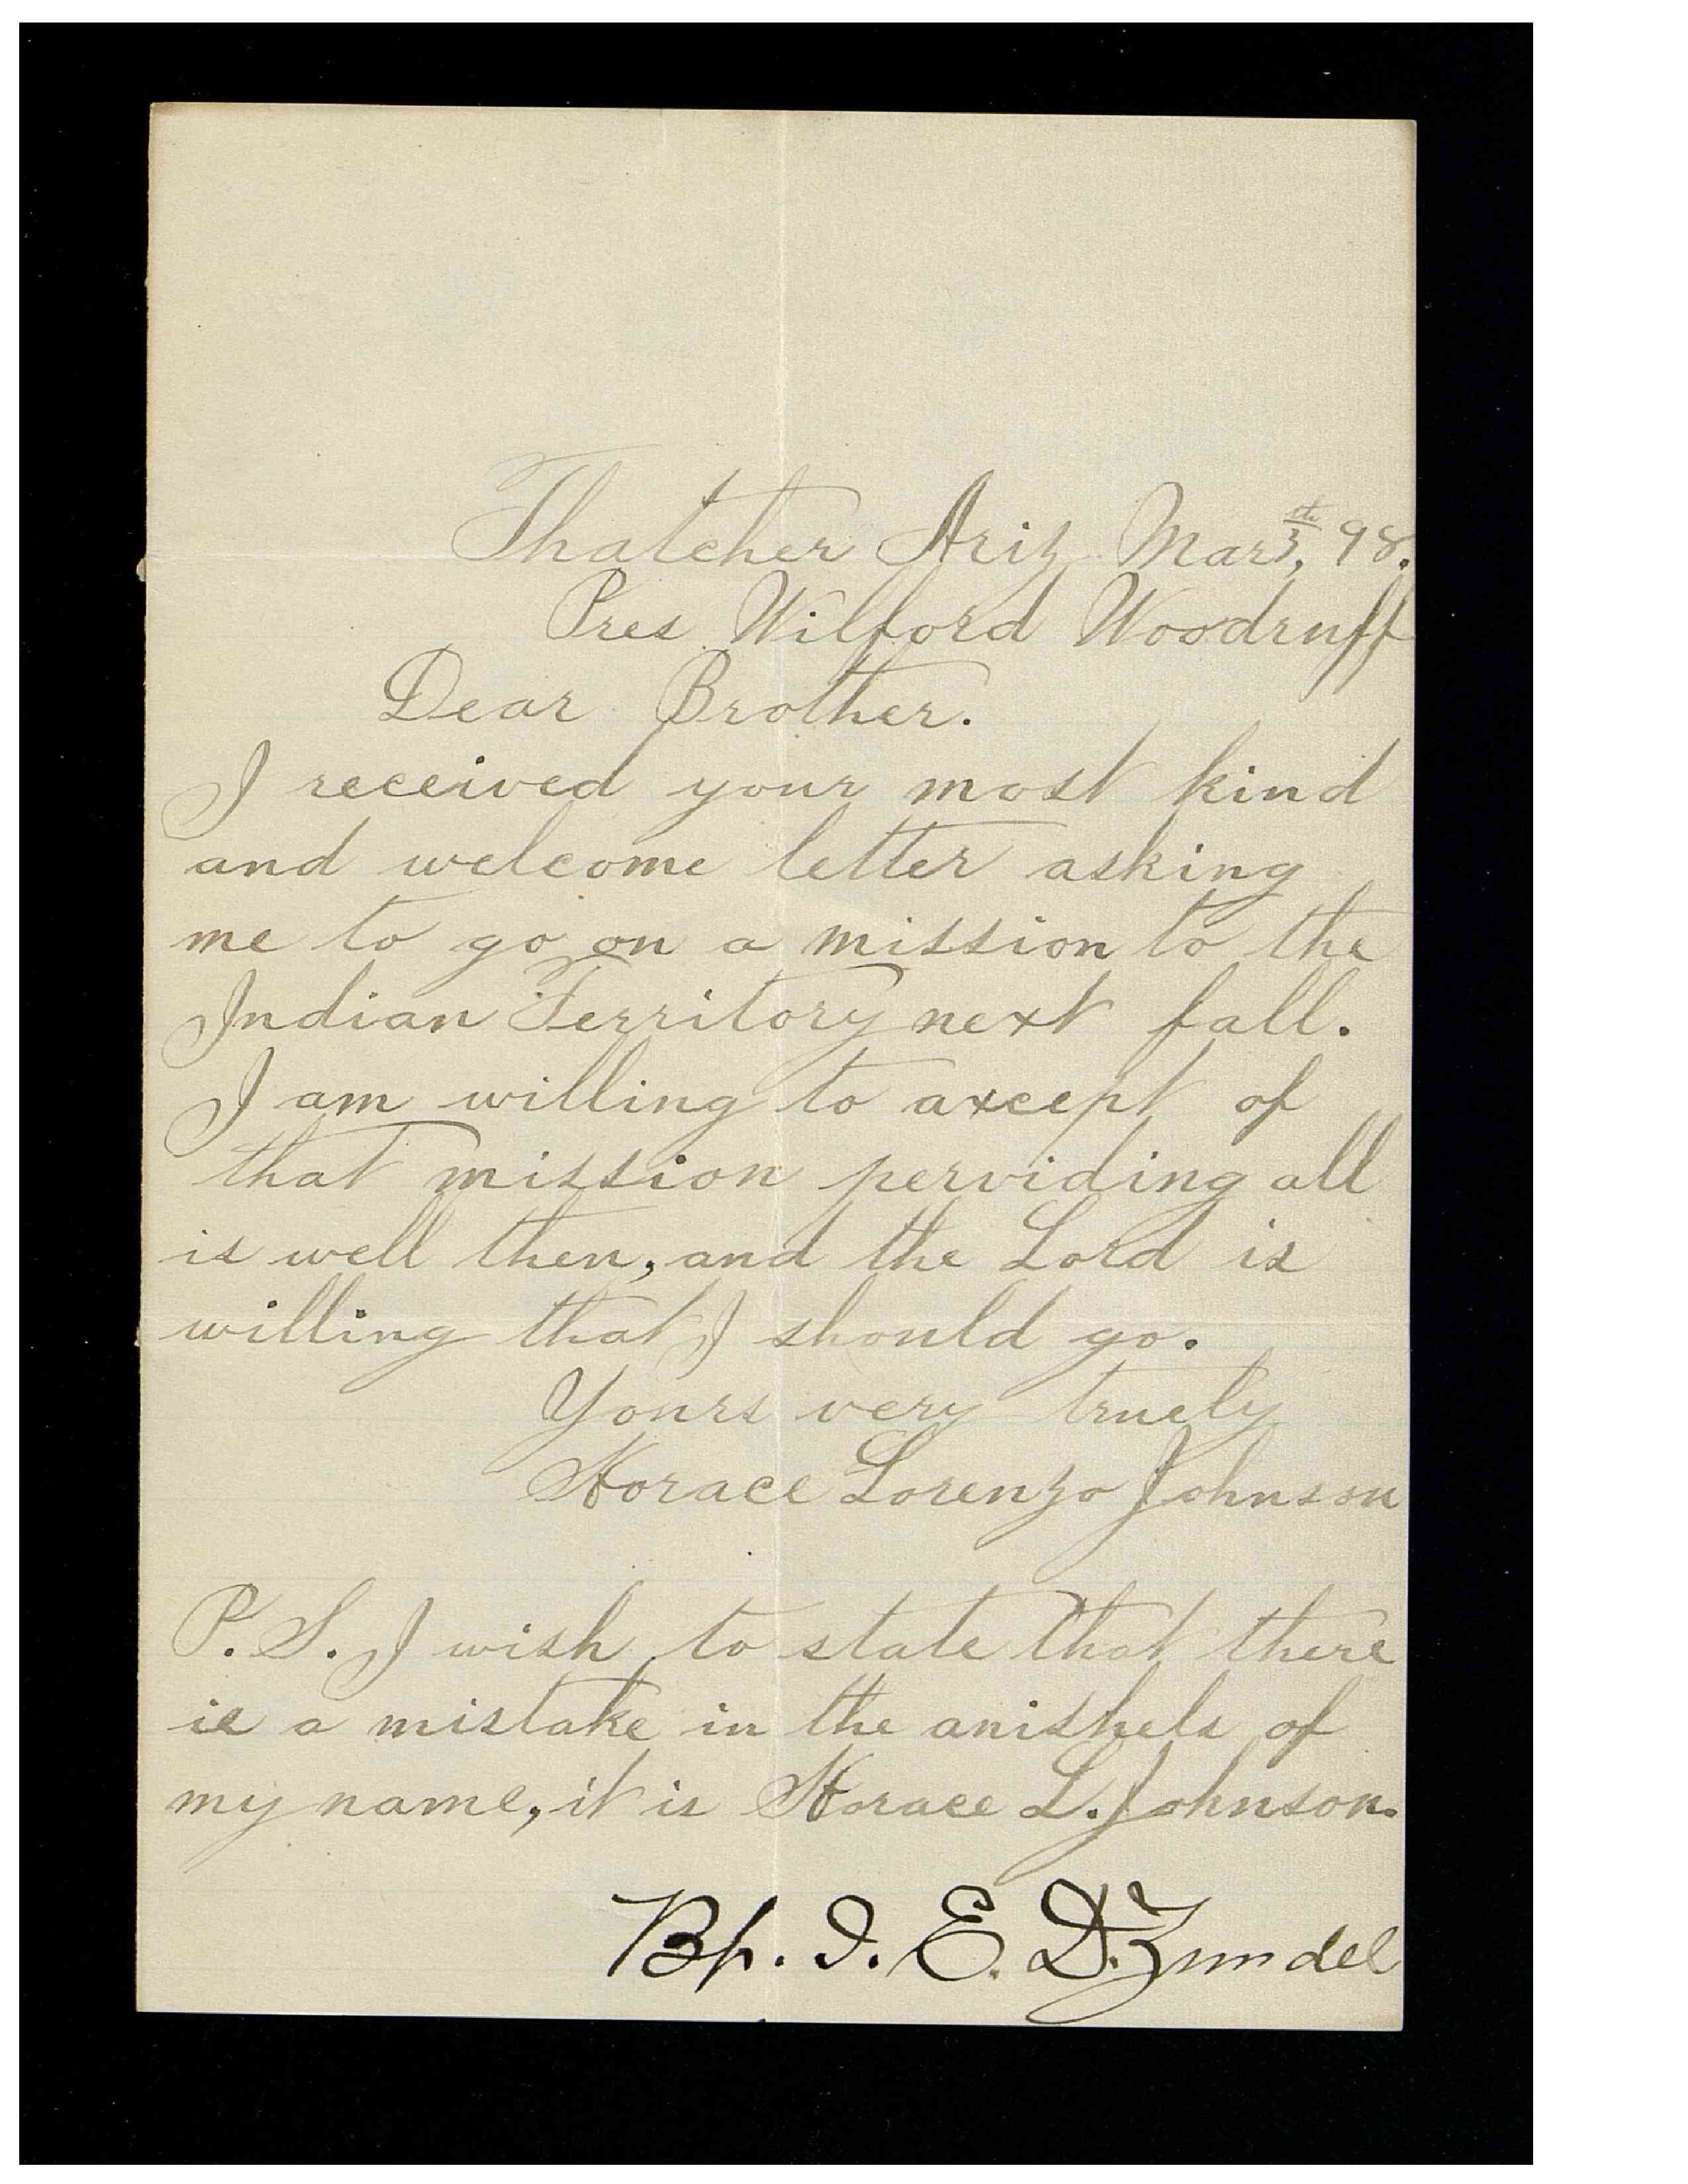 Thatcher Ariz Mar 3th, 98.
Pres Wilford Woodruff
Dear Brother.
I received your most kind
and welcome letter asking
me to go on a mission to the
Indian Territory next fall.
I am willing to axcept of
that mission perviding all
is well then, and the Lord is
willing that I should go.
Yours very truely
Horace Lorenzo Johnson
P. S. I wish to state that there
is a mistake in the anishels of
my name, it is Horace L. Johnson.
Bp. I. E. D. Zundel